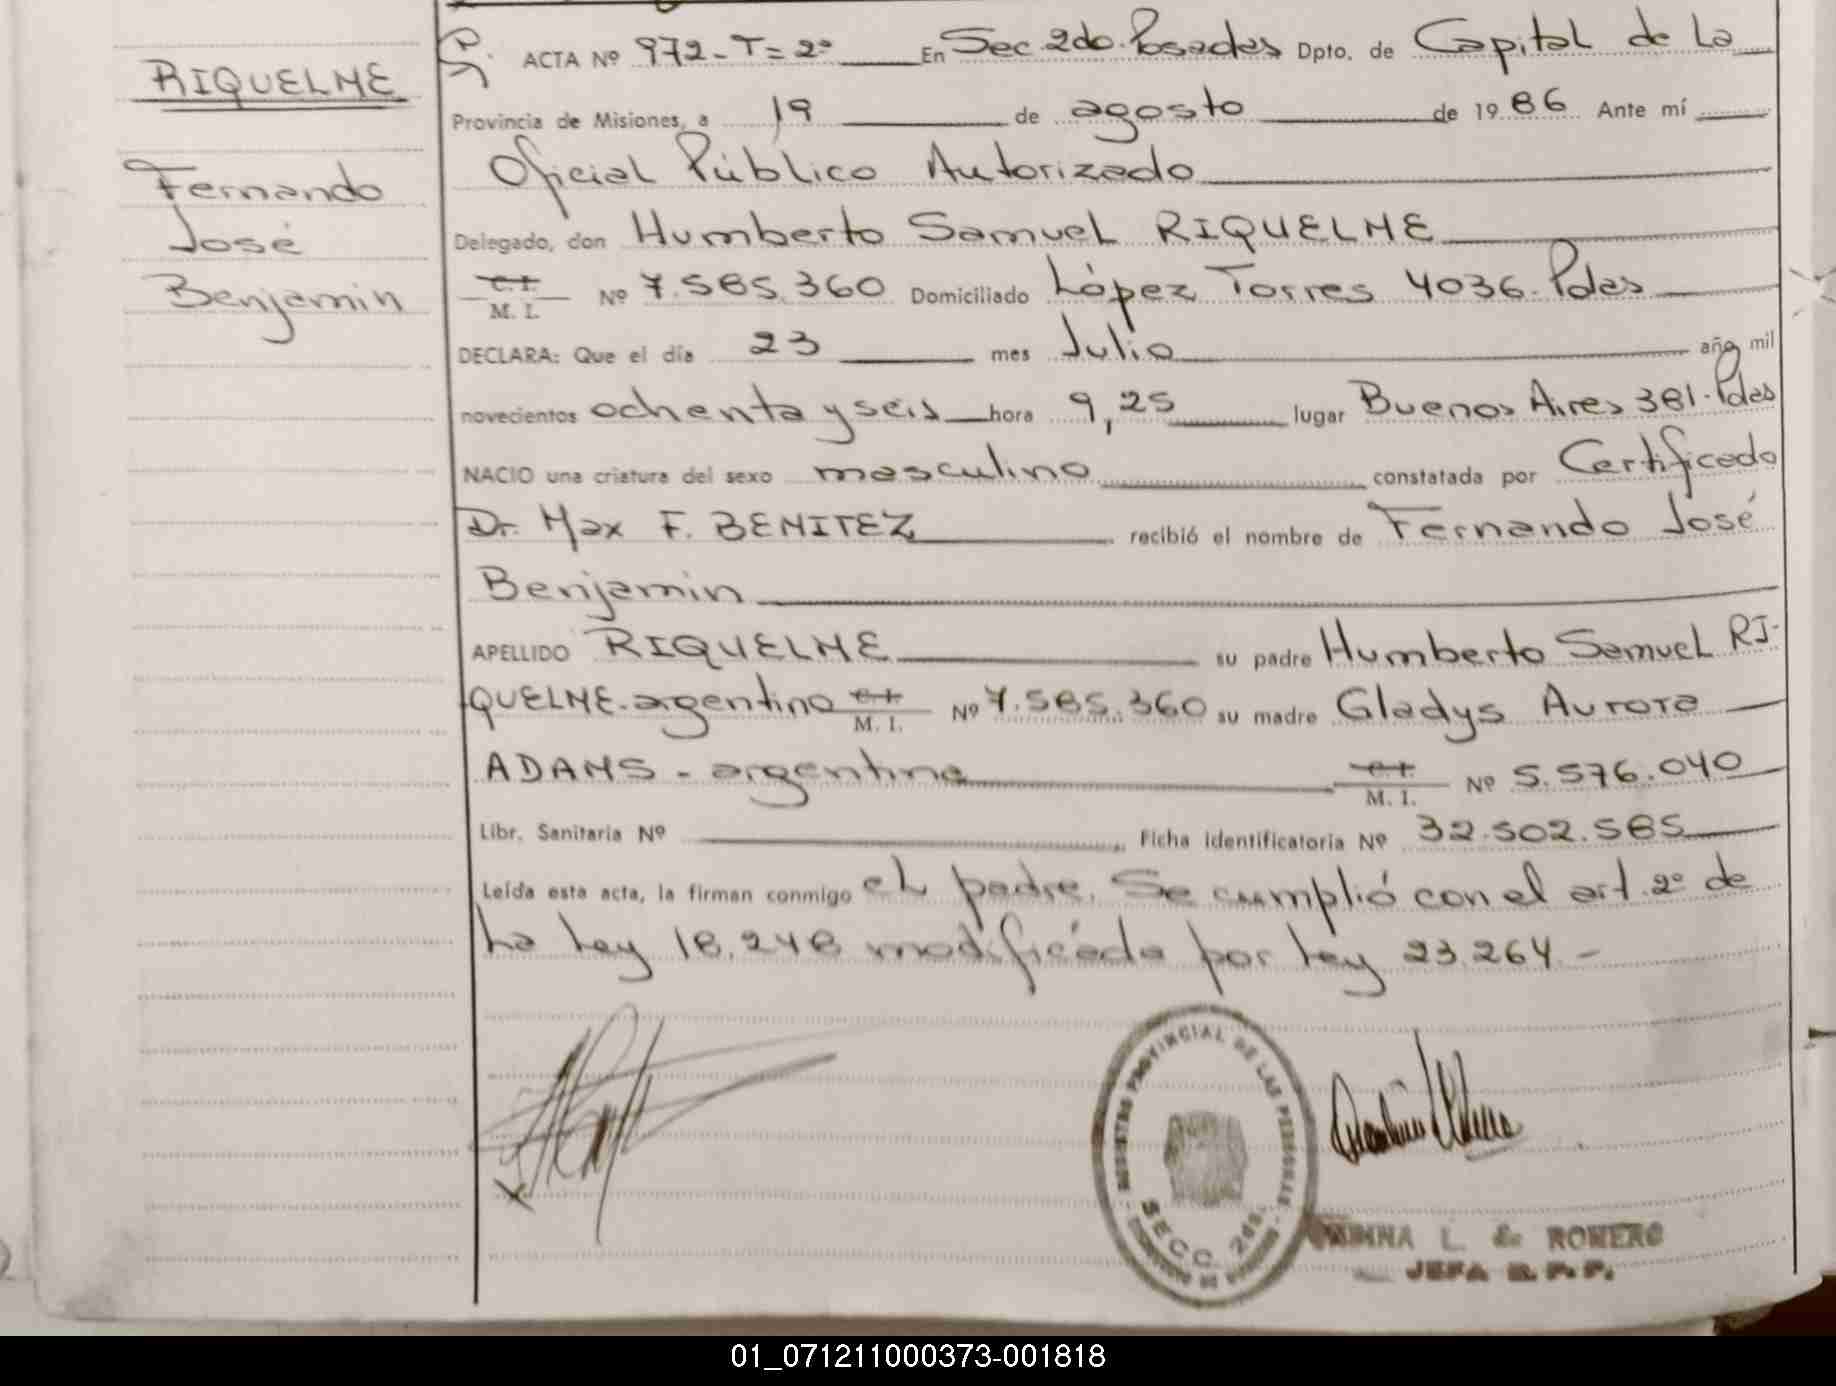 RIQUELME
Fernando
José
Benjamin
ACTA Nº 972-T=2º En Sec. 2do. Posadas Dpto. de Capital de La
Provincia de Misiones, a 19 de agosto de 1986 Ante mí
Oficial Público Autorizado
Delegado, don Humberto Samuel RIQUELME
C.I.
M. I. Nº 7.585.360 Domiciliado López Torres 4036. Pdas
DECLARA: Que el día 23 mes Julio año mil
novecientos ochenta y seis hora 9,25 lugar Buenos Aires 381. Pdas
NACIO una criatura del sexo masculino constatada por Certificado
Dr. Max F. BENITEZ recibió el nombre de Fernando José
Benjamin
APELLIDO RIQUELME su padre Humberto Samuel RI-
QUELME. argentino C.I. M. I. Nº 7.585.360 su madre Gladys Aurora
ADAMS - argentina C.I. M. I. Nº 5.576.040
Libr. Sanitaria Nº Ficha identificatoria Nº 32.502.585
Leída esta acta, la firman conmigo el padre. Se cumplió con el art. 2º de
la ley 18.248 modificada por ley 23.264.-
REGISTRO PROVINCIAL DE LAS PERSONAS
SECC. 2da.
L. de ROMERO
JEFA R. P. P.
01_071211000373-001818